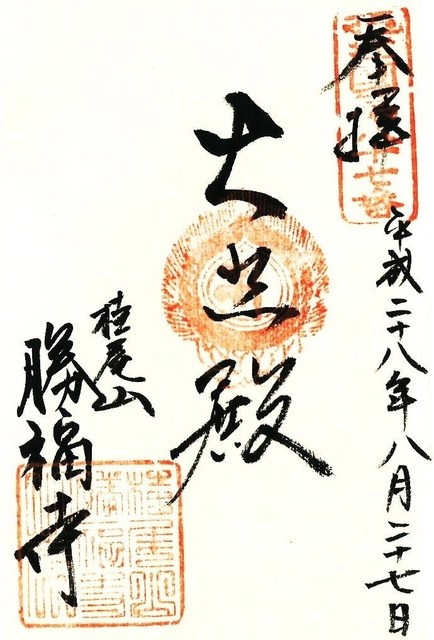 奉拝
十七番
平成二十八年八月二十七日
大悲殿
桂尾山
勝福寺